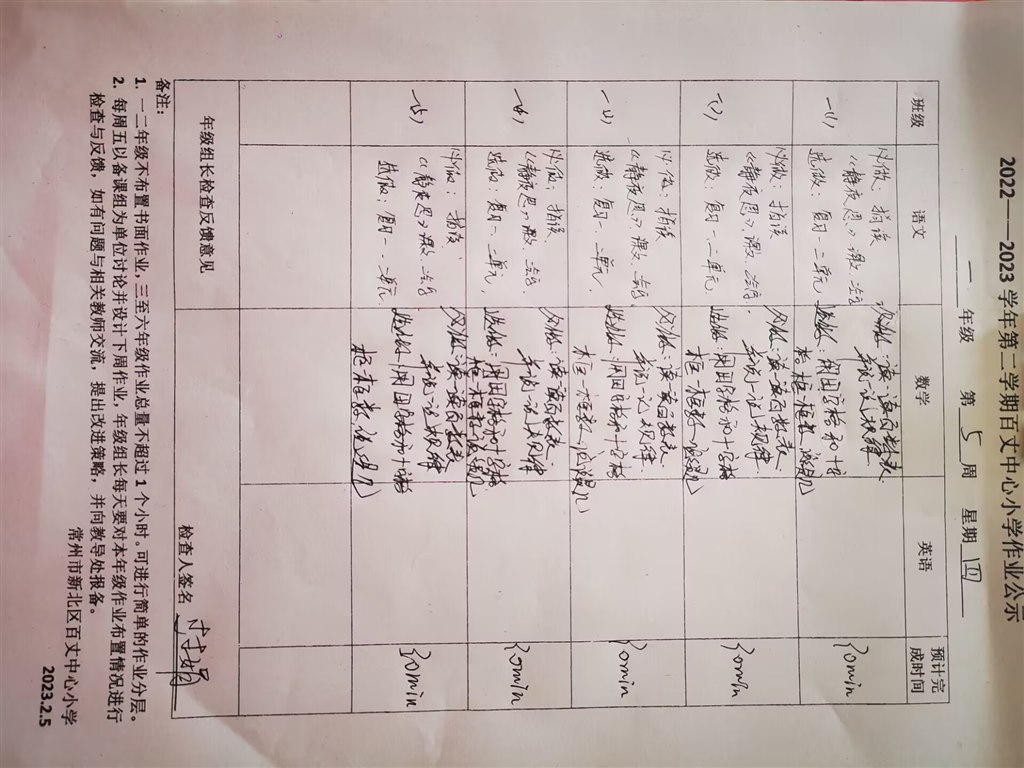 2022——2023 学年第二学期百丈中心小学作业公示
一 年级 第 5 周 星期 四
班级 语文 数学 英语 预计完成时间
一(1)
必做：拍读
《静夜思》课文.会写
选做：复习一二单元
必做：读一读百数表
并说一记规律
选做：用田字格和十字格
框一框数
30min
一(2)
必做：拍读
《静夜思》课文.会写
选做：复习一.二单元
必做：读一读百数表
并说一记规律
选做：用田字格和十字格
框一框数
30min
一(3)
必做：拍读
《静夜思》课文.会写
选做：复习一.二单元
必做：读一读百数表
并说一记规律
选做：用田字格和十字格
框一框数
30min
一(4)
必做：拍读
《静夜思》课文.会写
选做：复习一.二单元
必做：读一读百数表
并说一记规律
选做：用田字格和十字格
框一框数
30min
一(5)
必做：拍读
《静夜思》课文.会写
选做：复习一.二单元
必做：读一读百数表
并说一记规律
选做：用田字格和十字格
框一框数
30min
年级组长检查反馈意见
检查人签名
备注：
1. 一二年级不布置书面作业，三至六年级作业总量不超过 1 个小时。可进行简单的作业分层。
2. 每周五以备课组为单位讨论并设计下周作业，年级组长每天要对本年级作业布置情况进行
检查与反馈，如有问题与相关教师交流，提出改进策略，并向教导处报备。
常州市新北区百丈中心小学
2023.2.5